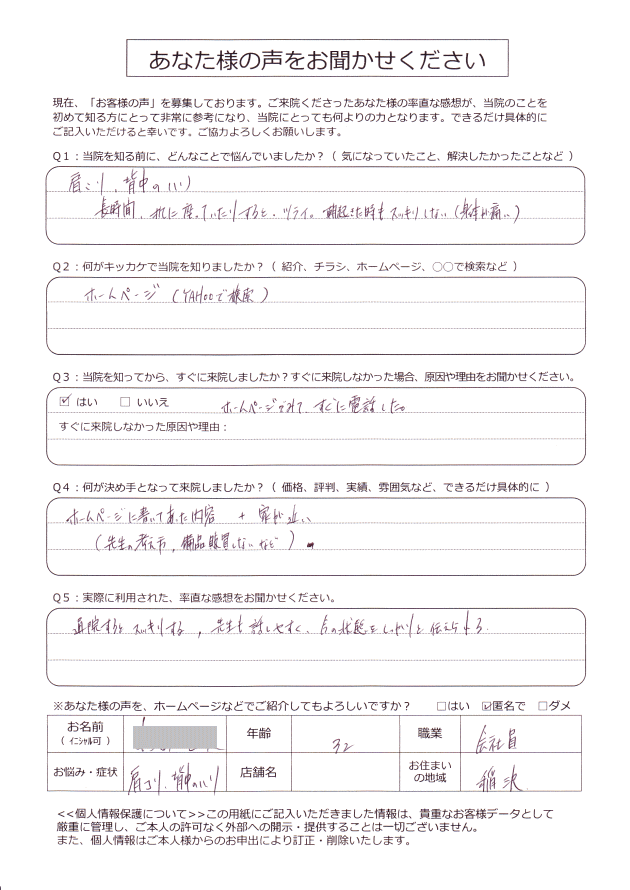 あなた様の声をお聞かせください
現在、「お客様の声」を募集しております。ご来院くださったあなた様の率直な感想が、当院のことを
初めて知る方にとって非常に参考になり、当院にとっても何よりの力となります。できるだけ具体的に
ご記入いただけると幸いです。ご協力よろしくお願いします。
Q1：当院を知る前に、どんなことで悩んでいましたか？（ 気になっていたこと、解決したかったことなど ）
肩こり、背中のハリ
長時間、座っていたりするとツライ。朝起きた時もスッキリしない（身体が痛い）
Q2：何がキッカケで当院を知りましたか？（ 紹介、チラシ、ホームページ、○○で検索など ）
ホームページ（YAHOOで検索）
Q3：当院を知ってから、すぐに来院しましたか？すぐに来院しなかった場合、原因や理由をお聞かせください。
☑ はい □ いいえ ホームページでみて、すぐに電話した。
すぐに来院しなかった原因や理由：
Q4：何が決め手となって来院しましたか？（ 価格、評判、実績、雰囲気など、できるだけ具体的に ）
ホームページに書いてあった内容 + 家が近い
（先生の考え方、備品販買しないなど）
Q5：実際に利用された、率直な感想をお聞かせください。
通院するとスッキリする、先生も話しやすく、体の状態をしっかりと伝えられる。
※あなた様の声を、ホームページなどでご紹介してもよろしいですか？ □はい ☑匿名で □ダメ
お名前 年齢 32 職業 会社員
（ ｲﾆｼｬﾙ可 ）
お悩み・症状 肩こり、背中のハリ 店舗名 お住まいの地域 稲沢
<<個人情報保護について>>この用紙にご記入いただきました情報は、貴重なお客様データとして
厳重に管理し、ご本人の許可なく外部への開示・提供することは一切ございません。
また、個人情報はご本人様からのお申出により訂正・削除いたします。